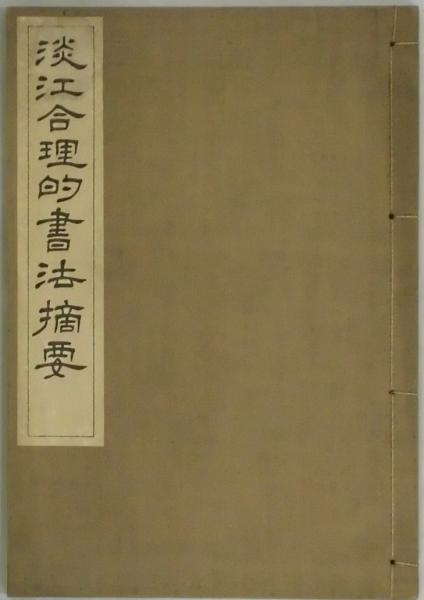 淡江合理的書法摘要